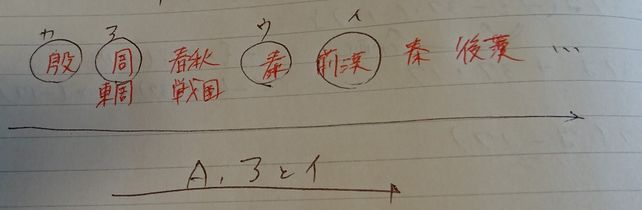 カ ア ウ イ
殷 周 春秋 秦 前漢 秦 後漢 …
東周 戦国
A, アとイ